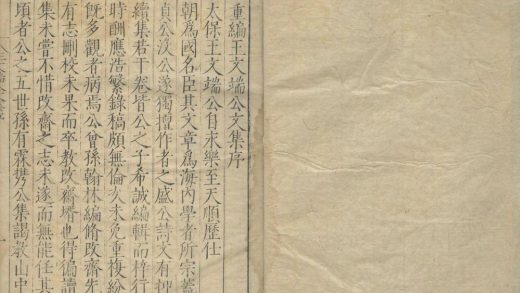 重編王文端公文集序
太保王文端公自永樂至天順歷仕
朝爲國名臣其文章爲海內學者所宗蓋
貞公沒公遂獨擅作者之盛公詩文有抑
續集若干卷皆公之子希誠編輯而梓行
時酬應浩繁錄稿頗無倫次未免重複紛
既多觀者病焉公曾孫翰林編脩改齋先
有志刪校未果而卒教改齋壻也得徧讀
集未嘗不惜改齋之志未遂而無能任其
頃者公之五世孫有霖攜公集謁教山中